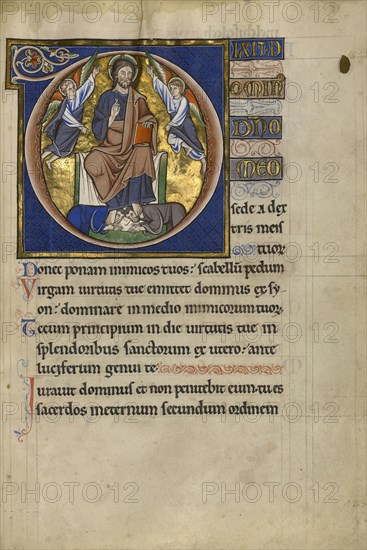 D IXIT D
OMIN
DNO
MEO
sede a dex
tris meis
Donec ponam inimicos tuos: scabellū pedum tuor
Virgam virtutis tue emittet dominus ex sy
on: dominare in medio inimicorum tuor
Tecum principium in die virtutis tue in
splendoribus sanctorum ex utero: ante
luciferum genui te
Iuravit dominus et non penitebit eum: tu es
sacerdos ineternum secundum ordinem
PHOTO12